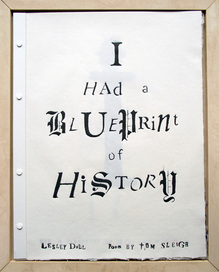 I
HAd a
BLUEPRiNt
of
HiSTORY
LESLEY DILL POEM BY TOM SLEIGH